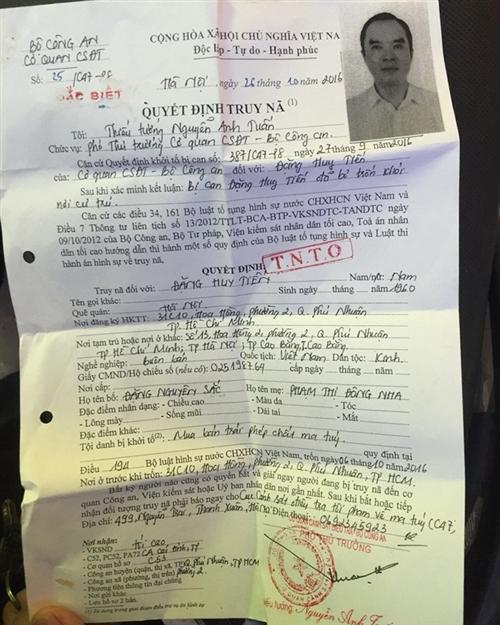 BỘ CÔNG AN
CƠ QUAN CSĐT
Số: 25 /C47-P8
ĐẶC BIỆT
CỘNG HÒA XÃ HỘI CHỦ NGHĨA VIỆT NA
Độc lập - Tự do - Hạnh phúc
Hà Nội, ngày 26 tháng 10 năm 2016
QUYẾT ĐỊNH TRUY NÃ (1)
Tôi: Thiếu tướng Nguyễn Anh Tuấn
Chức vụ: Phó Thủ trưởng Cơ quan CSĐT - Bộ Công an.
Căn cứ Quyết định khởi tố bị can số: 387/C47-P8 ngày 27 tháng 9 năm 2016
của: Cơ quan CSĐT - Bộ Công an đối với: Đặng Huy Tiến
Sau khi xác minh kết luận: Bị can Đặng Huy Tiến đã bỏ trốn khỏi
nơi cư trú.
Căn cứ các điều 34, 161 Bộ luật tố tụng hình sự nước CHXHCN Việt Nam và
Điều 7 Thông tư liên tịch số 13/2012/TTLT-BCA-BTP-VKSNDTC-TANDTC ngày
09/10/2012 của Bộ Công an, Bộ Tư pháp, Viện kiểm sát nhân dân tối cao, Toà án nhân
dân tối cao hướng dẫn thi hành một số quy định của Bộ luật tố tụng hình sự và Luật thi
hành án hình sự về truy nã,
QUYẾT ĐỊNH:
T.N.T.O
Truy nã đối với: ĐẶNG HUY TIẾN Nam/nữ: Nam
Tên gọi khác: Sinh ngày tháng năm 1960
Quê quán: Hà Nội
Nơi đăng ký HKTT: 31C10, Hoa Hồng, phường 2, Q. Phú Nhuận
TP. Hồ Chí Minh
Nơi tạm trú hoặc nơi ở khác: Số 13, Hoa Hồng, phường 2, Q. Phú Nhuận
TP Hồ Chí Minh; TP Hà Nội; TP Cao Bằng, T. Cao Bằng
Nghề nghiệp: buôn bán Quốc tịch: Việt Nam Dân tộc: Kinh
Giấy CMND/Hộ chiếu số (nếu có): cấp ngày tháng năm
Nơi cấp:
Họ tên bố: ĐẶNG NGUYÊN SẮC Họ tên mẹ: PHẠM THỊ ĐÔNG NHA
Đặc điểm nhân dạng: - Chiều cao - Màu da - Tóc
- Lông mày - Sống mũi - Dái tai - Mắt
Đặc điểm khác:
Tội danh bị khởi tố(2), Mua bán trái phép chất ma tuý quy định tại
Điều 194 Bộ luật hình sự nước CHXHCN Việt Nam, trốn ngày 06 tháng 10 năm 2016
Nơi ở trước khi trốn: 31C10, Hoa Hồng, phường 2, Q. Phú Nhuận, TP. HCM.
Bất kỳ người nào cũng có quyền bắt và giải ngay người đang bị truy nã đến cơ
quan Công an, Viện kiểm sát hoặc Uỷ ban nhân dân nơi gần nhất. Sau khi bắt hoặc tiếp
nhận đối tượng truy nã phải báo ngay cho Cục Cảnh sát điều tra tội phạm về ma tuý (C47,
Địa chỉ: 499, Nguyễn Trãi, Thanh Xuân, Hà Nội Điện thoại: 0692345923
Nơi nhận:
- VKSND tối cao
- C52, PC52, PA72 CA các tỉnh, TP
- Cơ quan hồ sơ C53
- Công an huyện (quận, thị xã, TP) Q. Phú Nhuận, TP HCM
- Công an xã (phường, thị trấn) phường 2.
- Phương tiện thông tin đại chúng
- Nơi gửi khác
- Lưu hồ sơ 2 bản.
PHÓ THỦ TRƯỞNG
Thiếu tướng, Nguyễn Anh